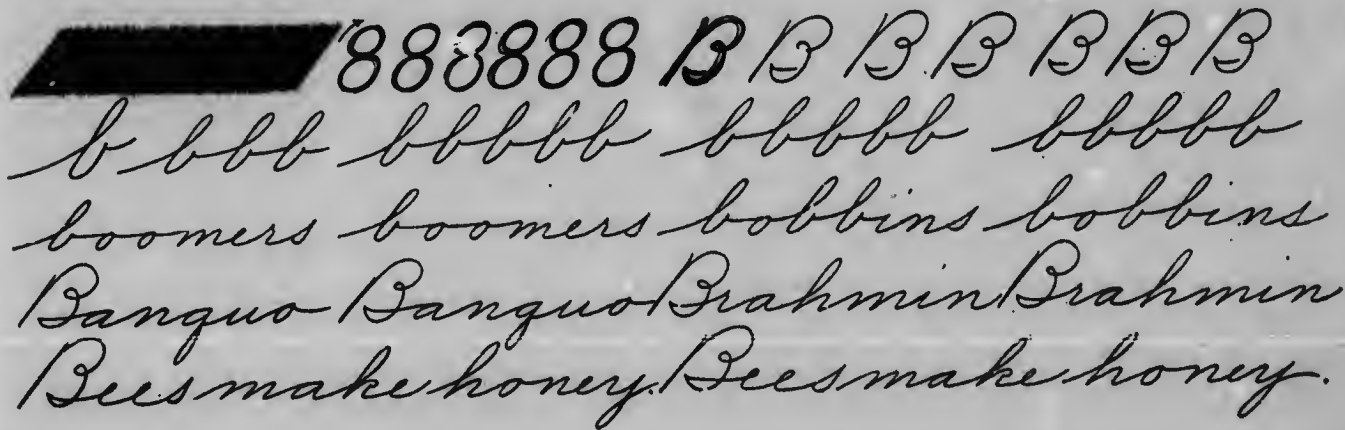 888888 B B B B B B B
b b b b b b b b b b b b b b b b b b b
boomers boomers bobbins bobbins
Banguo Banguo Brahmin Brahmin
Bees make honey. Bees make honey.